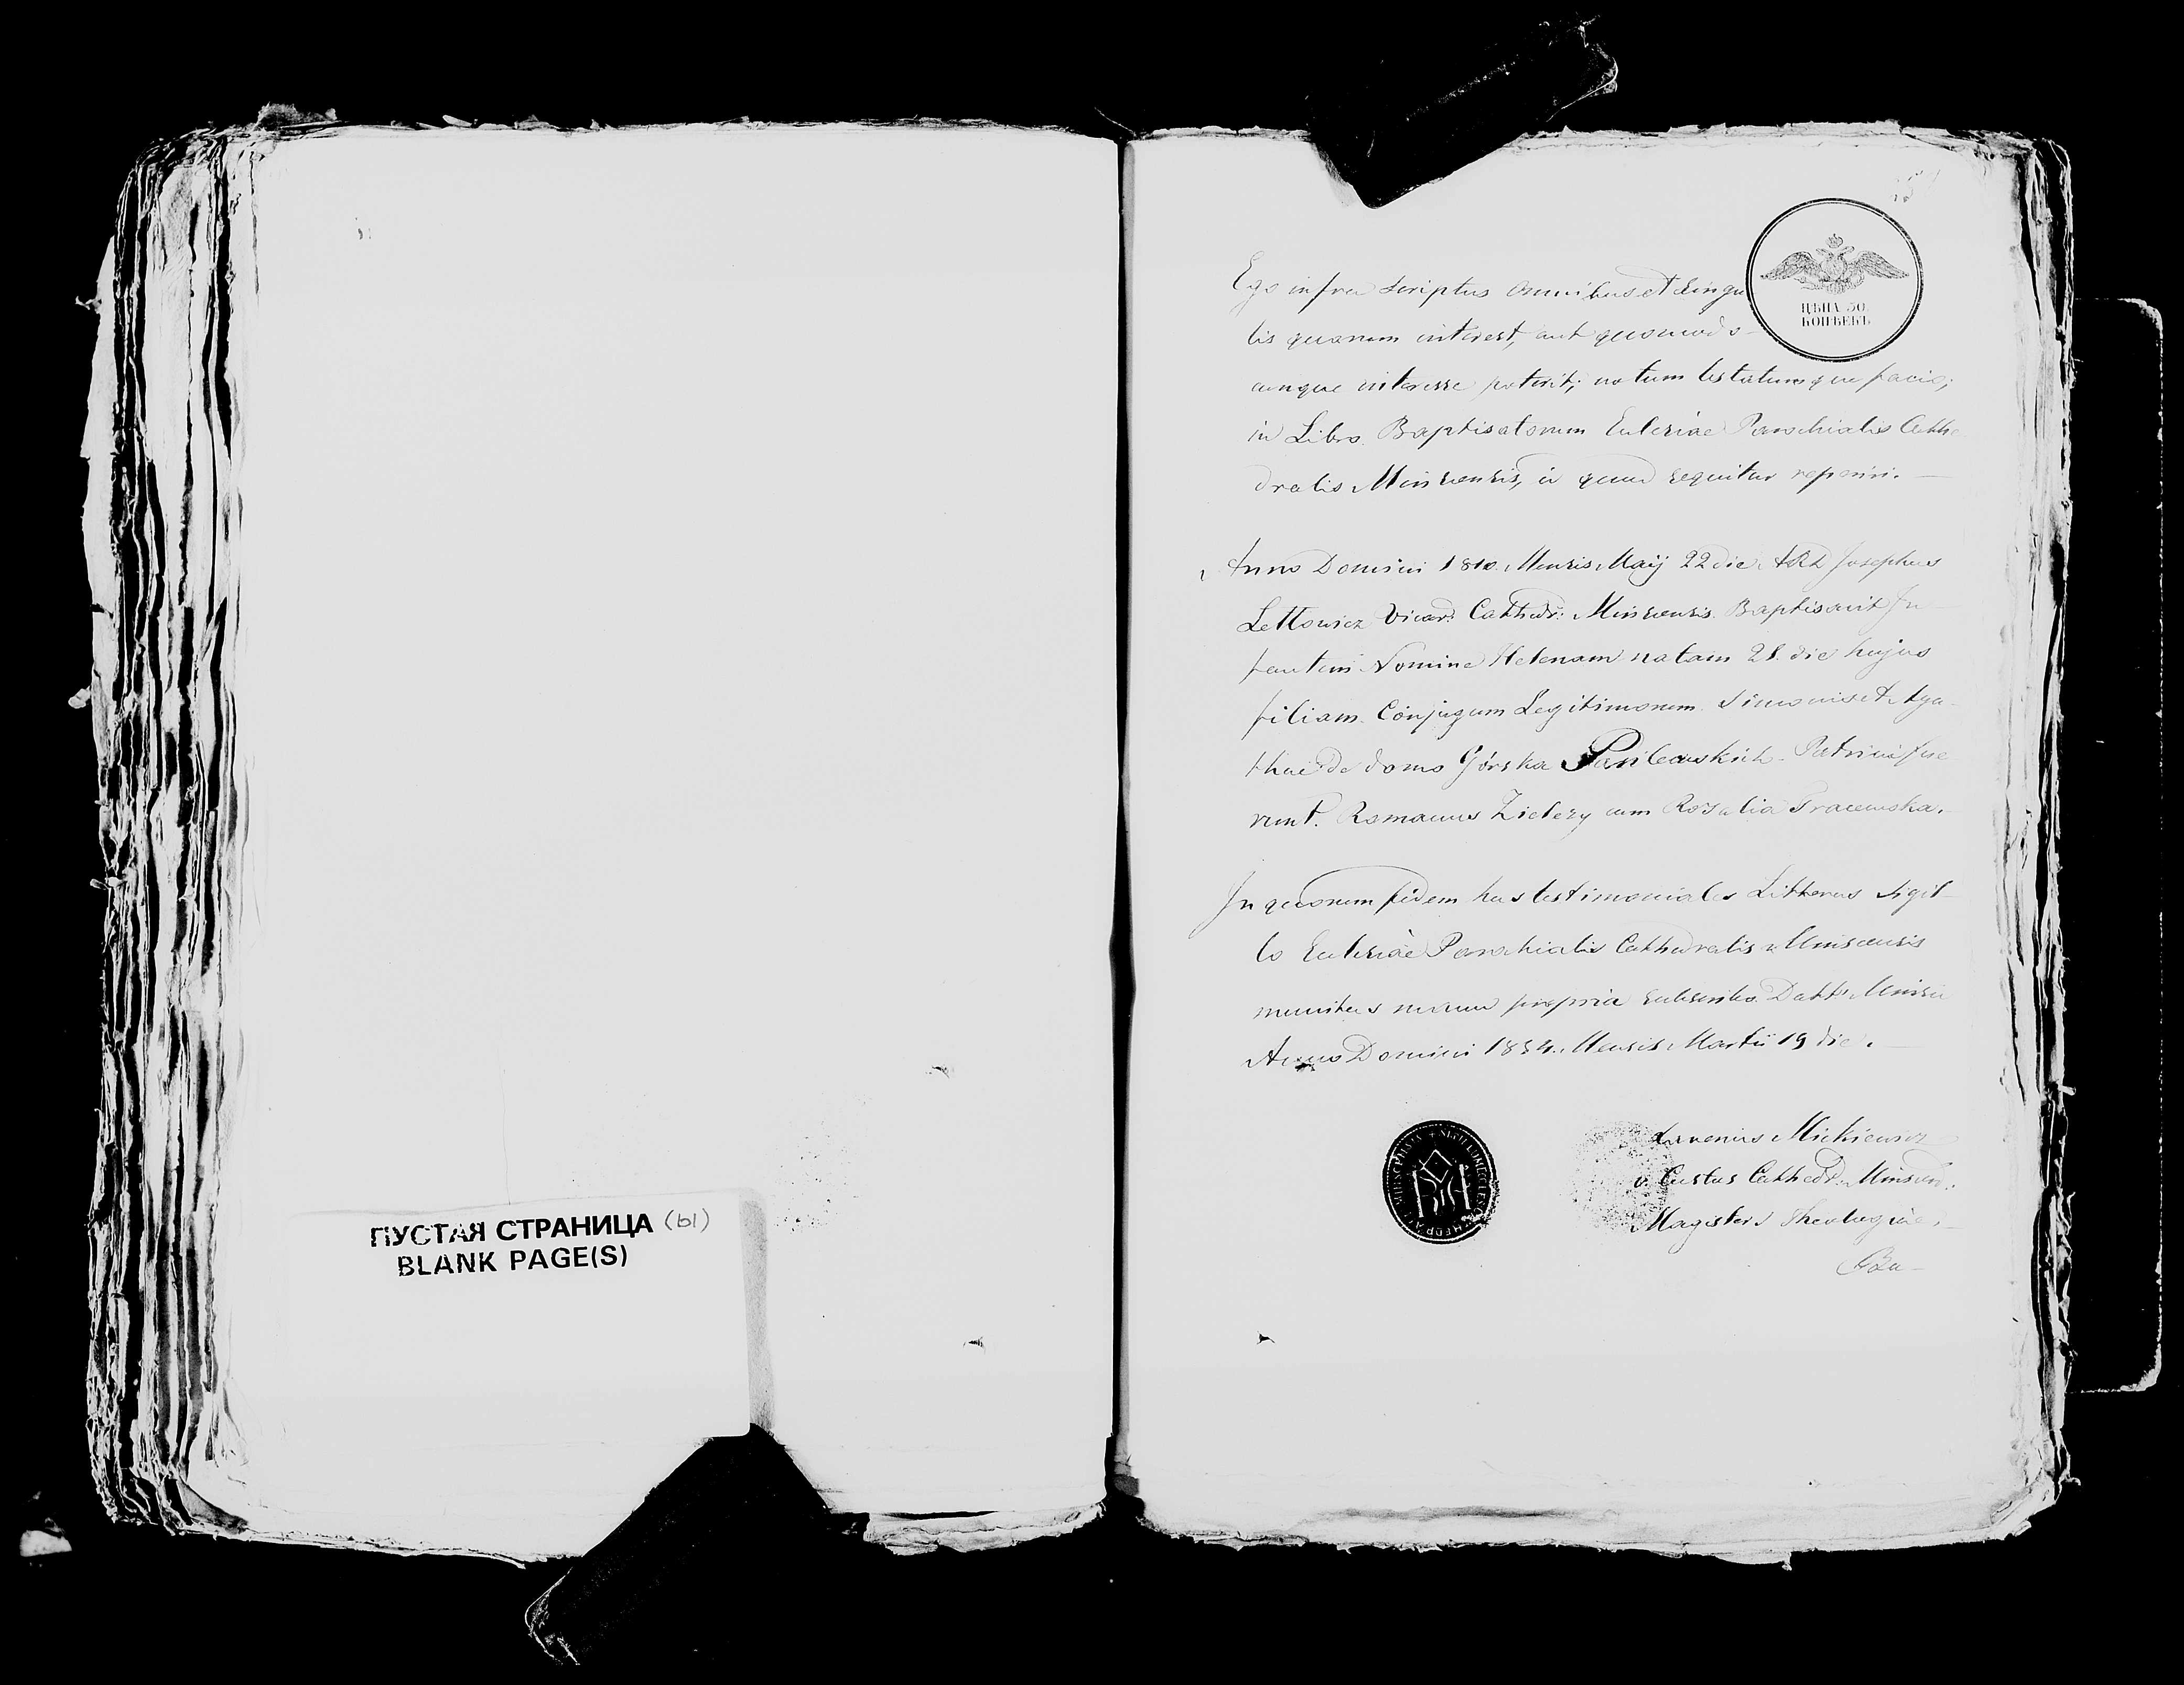 ПУСТАЯ СТРАНИЦА (ы)
BLANK PAGE(S)
ЦѢНА 50
КОПѢЕКЪ
Ego infra scriptus Omnibus et Singu
lis quorum interest, aut quomodo-
cunque interesse poterit; notum testatumque facio;
in Libro Baptisatorum Eclesiae Parochialis Cathe
dralis Minscensis, id quod sequitur reperiri. —
Anno Domini 1810. Mensis Maij 22 die ARL Josephus
Lettowicz Vicar: Cathedr: Minscensis Baptisavit In
fantem Nomine Helenam natam 21. die hujus
filiam Conjugum Legitimorum Simonis et Aga-
thae de domo Górska Pasilewskich - Patrini fue
runt. Romanus Zielezy cum Rosalia
In quorum fidem has testimoniales Litteras Sigil-
lo Eclesiae Parochialis Cathedralis Minscensis
munitas manu propria subscribo. Datt:
Anno Domini 1834. Mensis Martii 19 die. —
Mickiewicz
v. Custos Cathedr:
Magister Theologiae. —